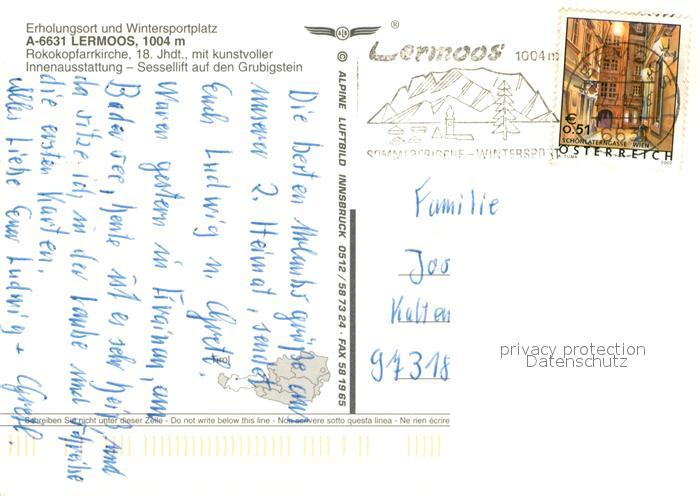 Erholungsort und Wintersportplatz
A-6631 LERMOOS, 1004 m
Rokokopfarrkirche, 18. Jhdt., mit kunstvoller
Innenausstattung – Sessellift auf den Grubigstein
®
© ALPINE LUFTBILD INNSBRUCK 0512/58 73 24 · FAX 58 19 65
Lermoos 1004 m
SOMMERFRISCHE - WINTERSPORT
€
0.51
SCHÖNLATERNGASSE WIEN
ÖSTERREICH
Die besten Urlaubsgrüße aus
unserer 2. Heimat, sendet
Euch Ludwig u. Gretl.
Waren gestern in am
Badersee, heute ist es sehr heiß und
da sitze ich in der Laube und
die ersten Karten.
Alles Liebe Euer Ludwig + Gretl.
Familie
Joo
Kalten
97318
privacy protection
Datenschutz
Tirol
Schreiben Sie nicht unter dieser Zeile - Do not write below this line - Non scrivere sotto questa linea - Ne rien écrire